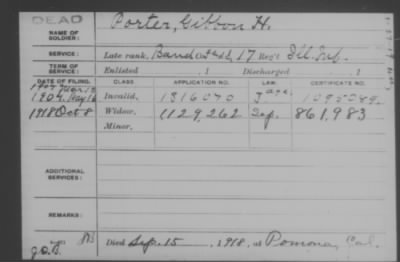 DEAD
NAME OF SOLDIER: Porter, Gibbon H.
SERVICE: Late rank, Band 17 Reg't Ill. Inf.
TERM OF SERVICE: Enlisted , 1 Discharged , 1
DATE OF FILING. CLASS. APPLICATION NO. LAW. CERTIFICATE NO.
1907 May 16 Invalid, 1316070
1918 Oct 8 Widow, 1129,262 861,983
Minor,
ADDITIONAL SERVICES:
REMARKS:
Died Sep. 15 , 1918, at Pomona, Cal.